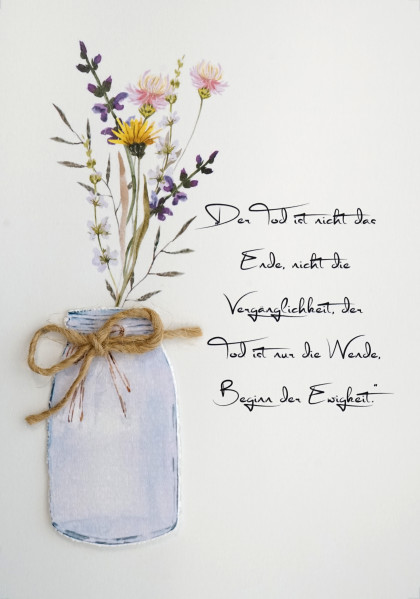 Der Tod ist nicht das
Ende, nicht die
Vergänglichkeit, der
Tod ist nur die Wende,
Beginn der Ewigkeit."